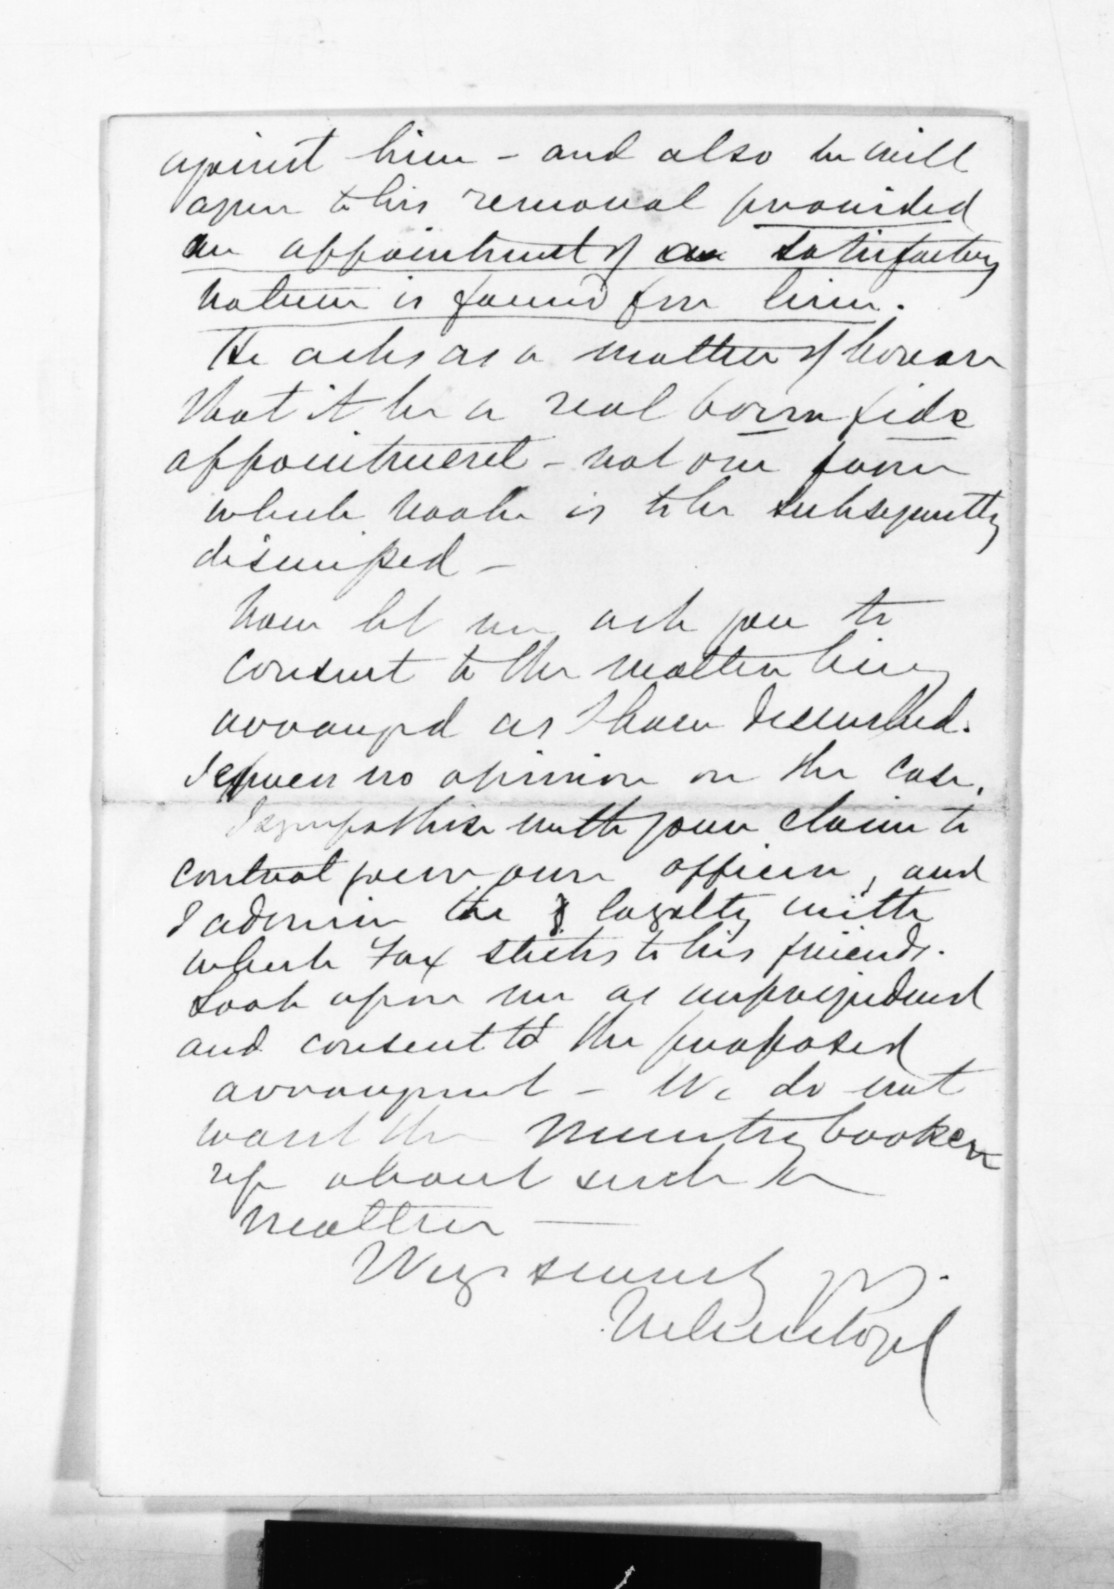 against him - and also he will
agree to his removal provided
an appointment of a satisfactory
nature is found for him.
He asks as a matter of honour
that it be a real bona fide
appointment - not one from
which Hooke is to be subsequently
dismissed -
Now let me ask you to
consent to the matter being
arranged as I have described.
I express no opinion on the case.
I sympathise with your claim to
control your own officers, and
I admire the loyalty with
which Fox sticks to his friends.
Look upon me as unprejudiced
and consent to the proposed
arrangement - We do not
want the Ministry broken
up about such a
matter —
Very sincerely yrs.